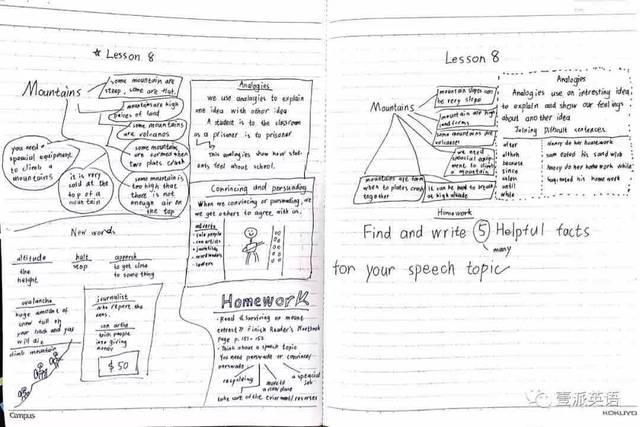 ☆ Lesson 8
Mountains
some mountain are
steep, some are flat.
mountains are high
peices of land
some mountains
are volcanos
some mountain
are formes when
two plates crash
some mountain is
too high that
there is not
enough air on
the top
you need
special equipment
to climb a
mountains
it is very
cold at the
top of a
mountain
Analogies
we use analogies to explain
one idea with other idea
A student is to the classroom
as a prisoner is to prisoner
this analogies show how stu-
dents feel about school.
Convincing and persuading
When we convincing or persuading, we
we get others to agree with us.
adverts
sale people
con artists
journalists
leaders
New words
altitude
the
height
halt
stop
approach
to get close
to some thing
avalanche
huge amount of
snow fall on
your and you
will die
climb mountain
journalist
who report the
news.
con artist
trick people
into giving
money
$ 50
Homework
Finish Reader's Notebook
page
Think about a speech topic
You need persuade or convince
persuade
recycling
a special
job
take care of the
Lesson 8
Mountains
mountain slopes can
be very steps
mountain are high
land forms
some mountains are
volcanoes
we need
special equip-
ment to climb
a mountain
It can be hard to breath
at high altitude
mountains are form
when to plates crash
together
Analogies
Analogies use an intresting idea
to explain and show our feelings
about another idea
Joining Difficult sentences
after
althoh
because
since
unless
until
while
Henry do her homework
sam eated his sand wish
Henry do her homework while
his home work
Homework
Find and write 5 Helpful facts
many
for your speech topic
Campus
KOKUYO
壹派英语